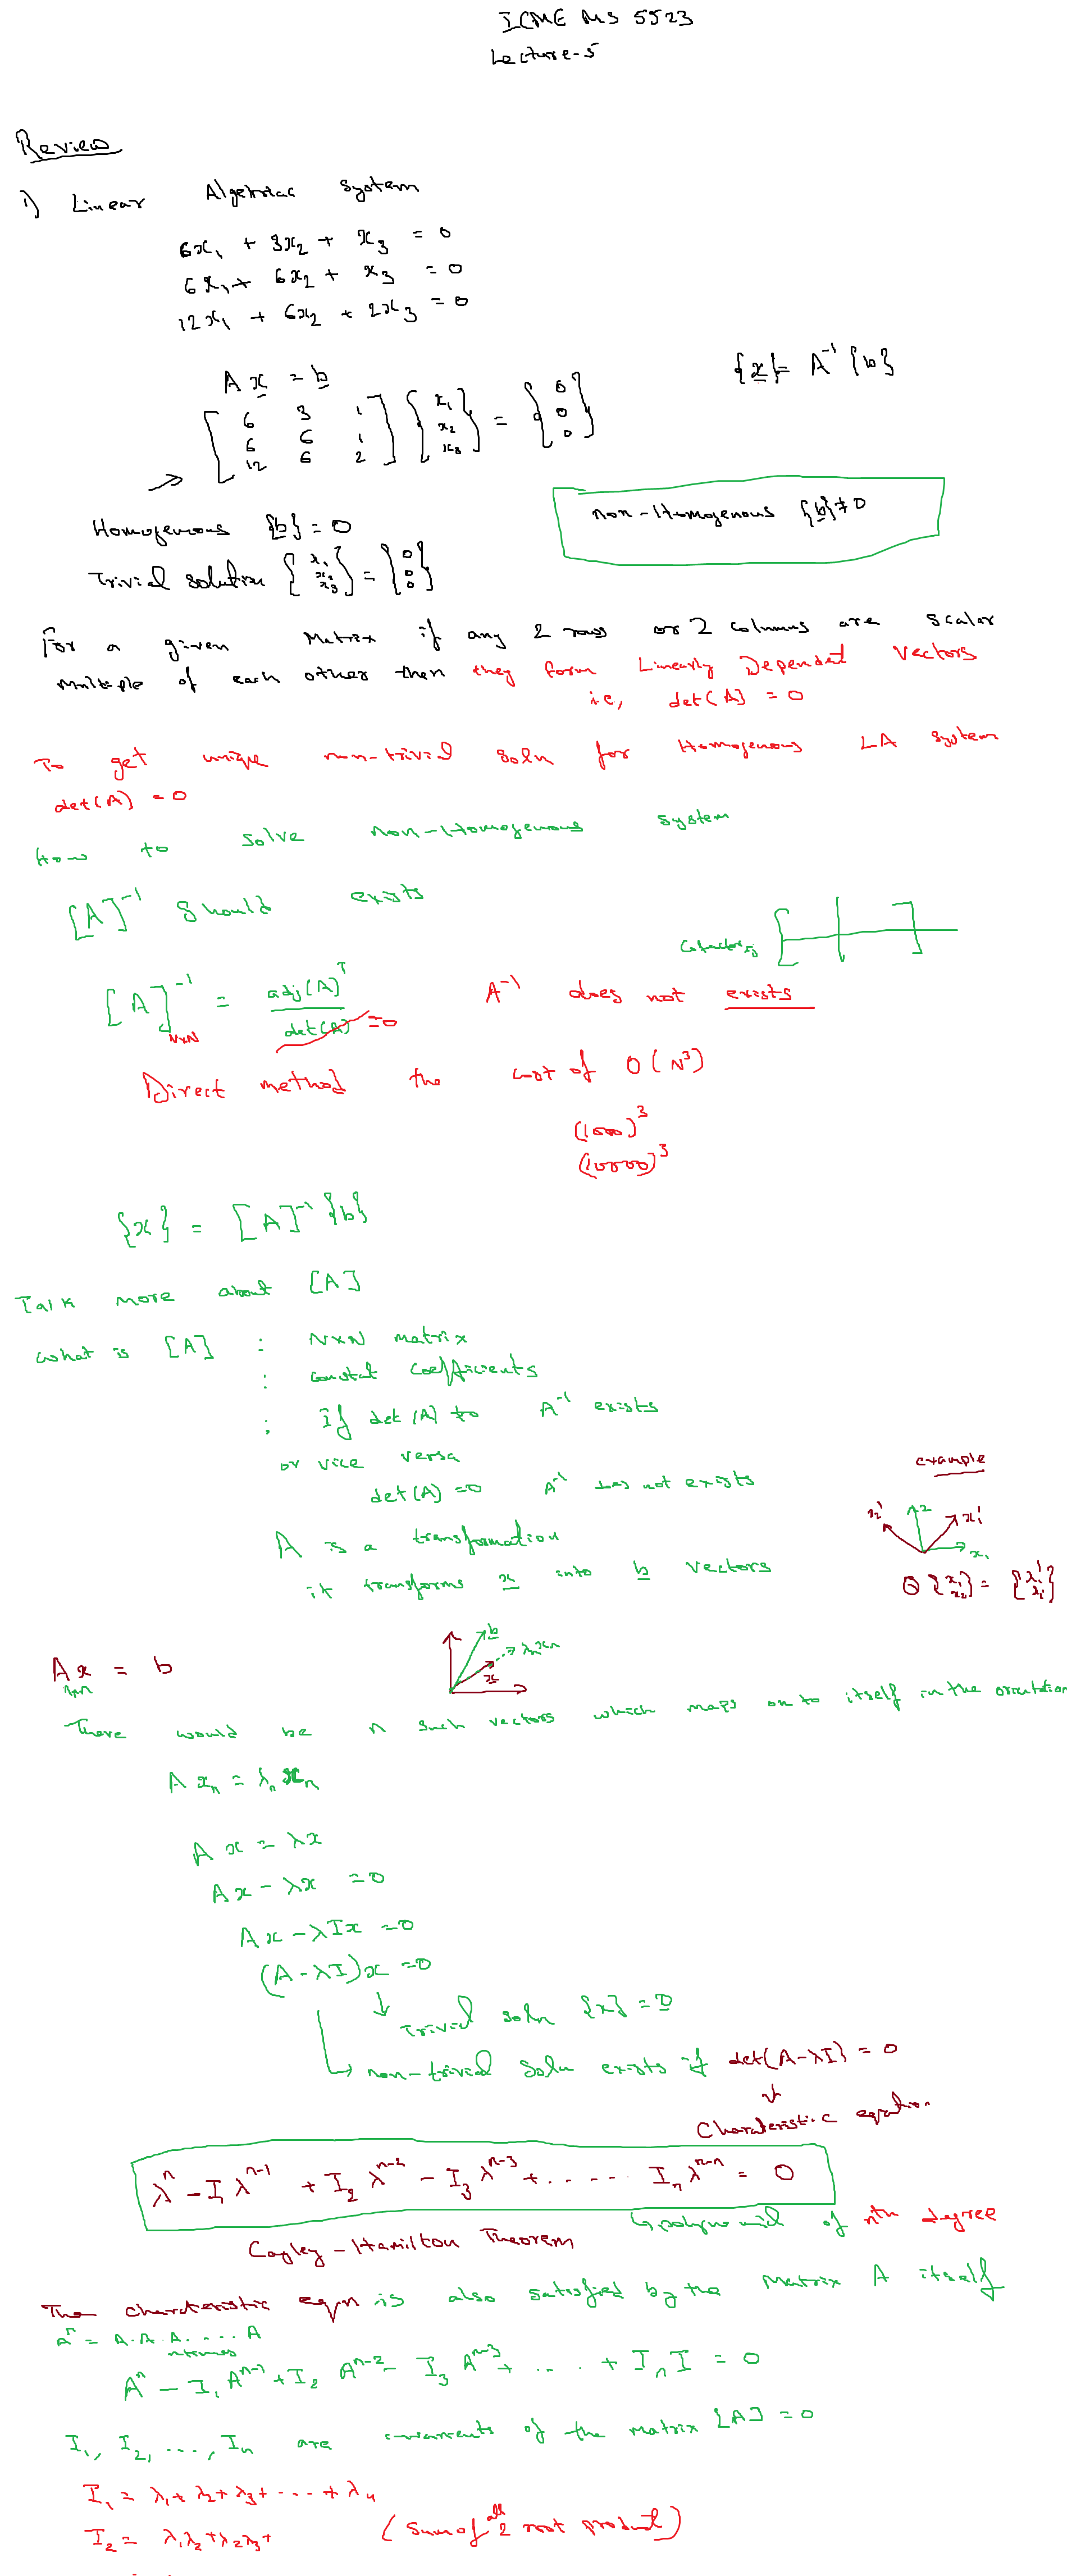 ICME MS 5523
Lecture-5
Review
1) Linear Algebraic System
6x₁ + 3x₂ + x₃ = 0
6x₁ + 6x₂ + x₃ = 0
12x₁ + 6x₂ + 2x₃ = 0
A x = b
{x} = A⁻¹ {b}
[ 6 3 1 ] { x₁ } = { 0 }
[ 6 6 1 ] { x₂ } = { 0 }
[ 12 6 2 ] { x₃ } = { 0 }
Homogenous {b} = 0
non-Homogenous {b} ≠ 0
Trivial solution { x₁ x₂ x₃ } = { 0 0 0 }
For a given Matrix if any 2 rows or 2 columns are scalar
multiple of each other then they form Linearly Dependent Vectors
i.e, det(A) = 0
To get unique non-trivial soln for Homogenous LA system
det(A) = 0
How to solve non-Homogenous system
[A]⁻¹ should exists
Cofactors
[A]⁻¹ NxN = adj(A)ᵀ / det(A) = 0 A⁻¹ does not exists
Direct method the cost of O(N³)
(1000)³
(10000)³
{x} = [A]⁻¹ {b}
Talk more about [A]
what is [A] : NxN matrix
: constat coefficients
: If det(A) ≠ 0 A⁻¹ exists
or vice versa
det(A) = 0 A⁻¹ does not exists
example
A is a transformation
it transforms x into b vectors
x₂' x₂ x₁' x₁
Q { x₁ x₂ } = { x₁' x₂' }
A x = b
nxn
b λₙxₙ x
There would be n such vectors which maps on to itself in the orientation
A xₙ = λₙ xₙ
A x = λx
Ax - λx = 0
Ax - λIx = 0
(A - λI)x = 0
Trivial soln {x} = 0
non-trivial soln exists if det(A-λI) = 0
Charateristic equation
λⁿ - I₁ λⁿ⁻¹ + I₂ λⁿ⁻² - I₃ λⁿ⁻³ + ..... Iₙ λⁿ⁻ⁿ = 0
polynomial of nth degree
Cayley-Hamilton Theorem
The charcteristic eqn is also satisfied by the matrix A itself
Aⁿ = A.A.A.....A
n times
Aⁿ - I₁ Aⁿ⁻¹ + I₂ Aⁿ⁻² - I₃ Aⁿ⁻³ + .... + Iₙ I = 0
I₁, I₂, ..., Iₙ are invarients of the matrix [A] = 0
I₁ = λ₁ + λ₂ + λ₃ + .... + λₙ
I₂ = λ₁λ₂ + λ₂λ₃ + (sum of all 2 root product)